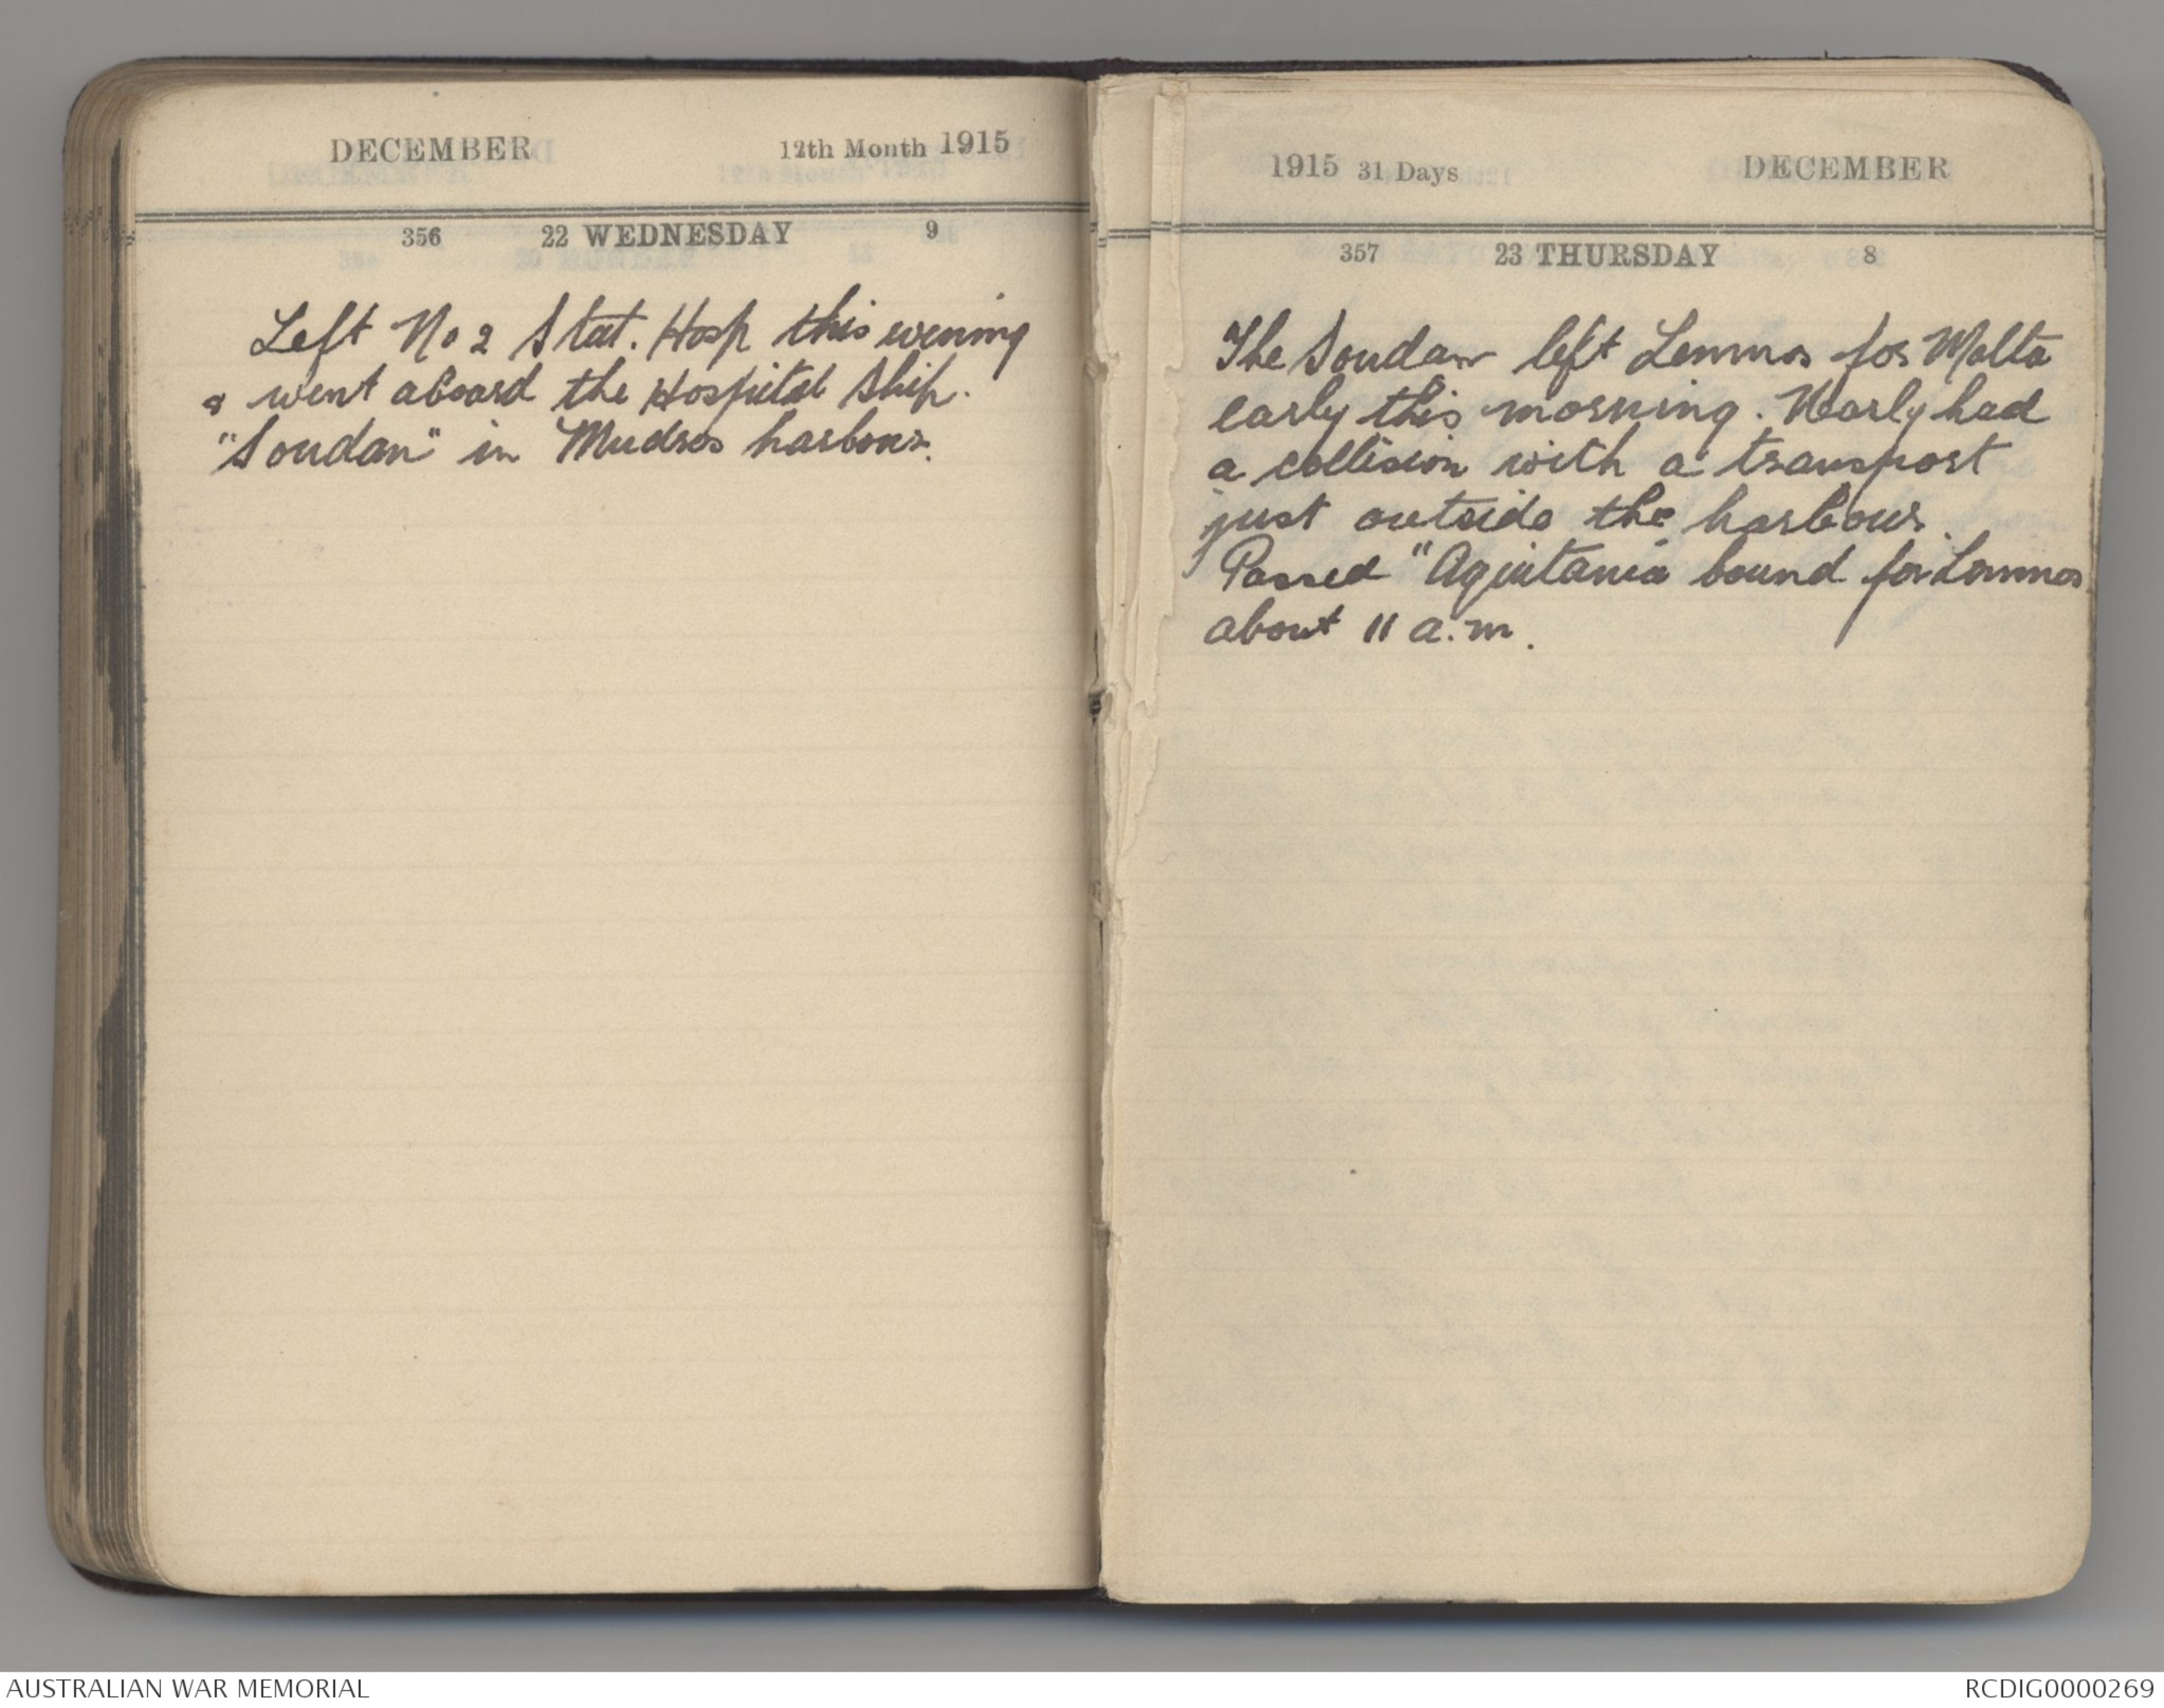 DECEMBER 12th Month 1915
356 22 WEDNESDAY 9
Left No 2 Stat. Hosp this evening
& went aboard the Hospital Ship.
"Soudan" in Mudros harbour.
1915 31 Days DECEMBER
357 23 THURSDAY 8
The Soudan left Lemnos for Malta
early this morning. Nearly had
a collision with a transport
just outside the harbour.
Passed "Aquitania bound for Lemnos
about 11 a.m.
AUSTRALIAN WAR MEMORIAL
RCDIG0000269